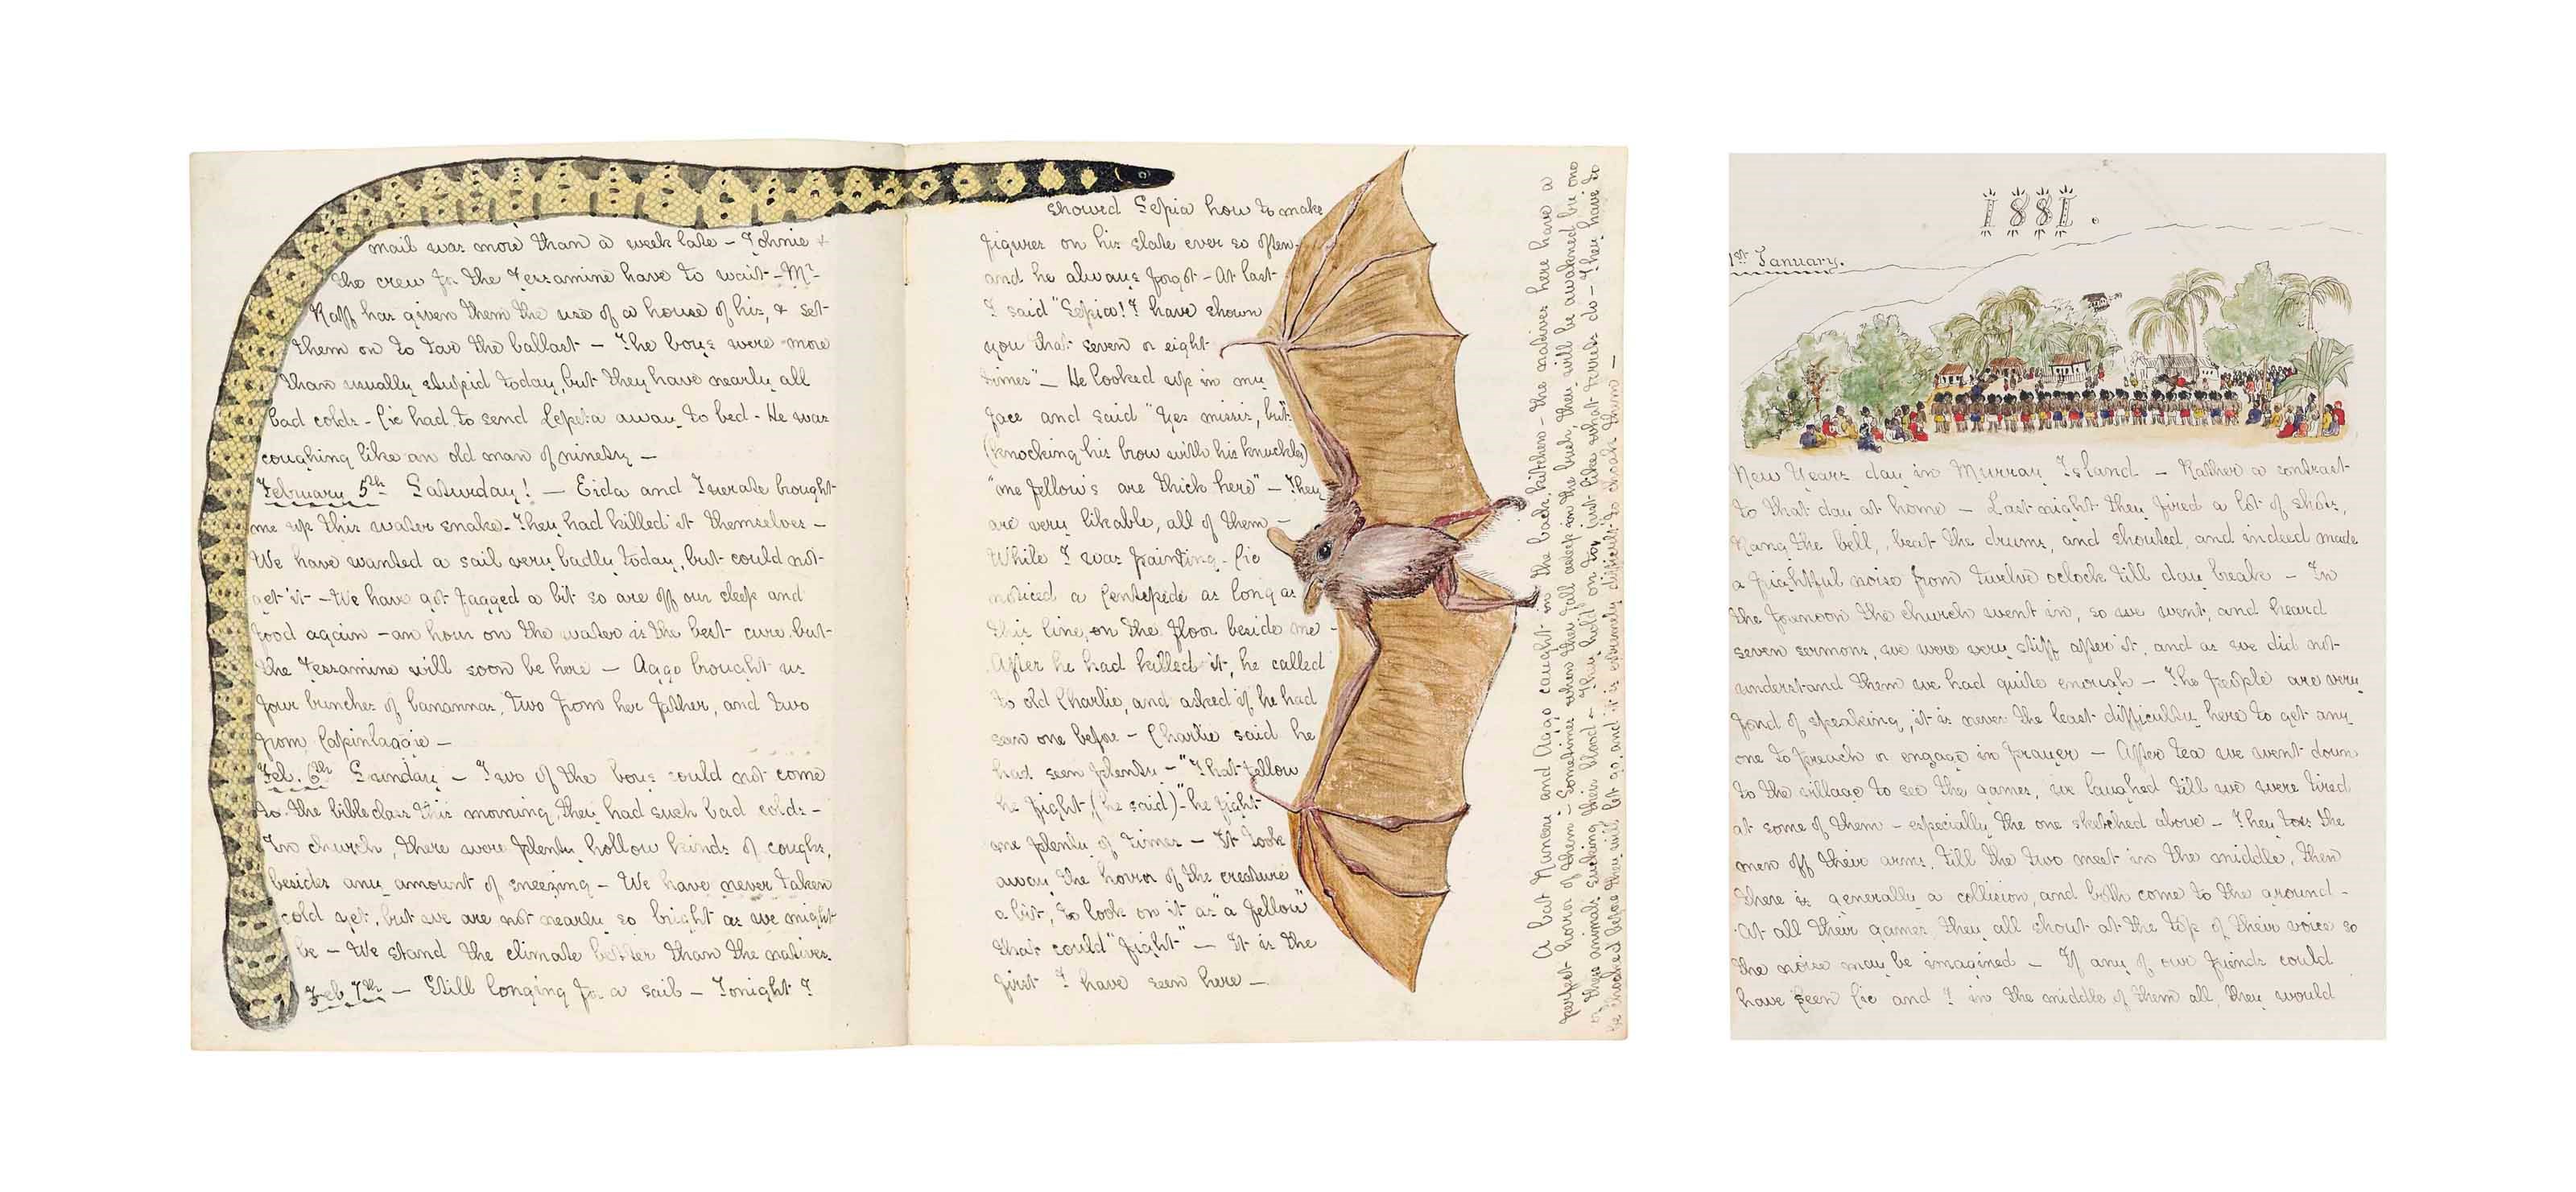 mail was more than a week late – Johnie &
the crew for the Jessamine have to wait – Mr
Raff has given them the use of a house of his, & set
them on to tar the ballast – The boys were more
than usually stupid today, but they have nearly all
bad colds – Cie had to send Lepeta away to bed – He was
coughing like an old man of ninety –
February 5th Saturday! – Eida and Iwerate brought
me up this water snake – They had killed it themselves –
We have wanted a sail very badly today, but could not
get it – We have got fagged a bit so are off our sleep and
food again – an hour on the water is the best cure but
the Jessamine will soon be here – Aggo brought us
four bunches of banannas, two from her father, and two
from
Feb. 6th Sunday – Two of the boys could not come
to the bible class this morning, they had such bad colds –
In church, there were plenty hollow kinds of coughs,
besides any amount of sneezing – We have never taken
cold yet, but we are not nearly so bright as we might
be – We stand the climate better than the natives.
Feb. 7th – Still longing for a sail – Tonight I
showed Sepia how to make
figures on his slate ever so often
and he always forgot – At last
I said "Sepia! I have shown
you that seven or eight
times" – He looked up in my
face and said "Yes missis, but"
(knocking his brow with his knuckles)
"me fellow's are thick here" – They
are very likable, all of them –
While I was painting – Cie
noticed a Centepede as long as
this line, on the floor beside me –
After he had killed it, he called
to old Charlie, and asked if he had
seen one before – Charlie said he
had seen plenty – "That fellow
he fight (he said) – he fight
me plenty of times – It took
away the horror of the creature
a bit, to look on it as "a fellow"
that could "fight" – It is the
first I have seen here –
A bat Kuneri and Aggo caught in the back kitchen – the natives here have a
perfect horror of them – Sometimes when they fall asleep in the bush, they will be awakened by one
of these animals sucking their blood – They hold on too just like what ferrets do – They have to
be knocked before they will let go, and it is extremely difficult to choak them –
1881.
1st January.
New Years day in Murray Island – Rather a contrast
to that day at home – Last night they fired a lot of shots,
rang the bell, beat the drums, and shouted, and indeed made
a frightful noise from twelve oclock till day break – In
the forenoon the church went in, so we went, and heard
seven sermons, we were very stiff after it, and as we did not
understand them we had quite enough – The people are very
fond of speaking, it is never the least difficulty here to get any
one to preach or engage in prayer – After tea we went down
to the village to see the games, we laughed till we were tired
at some of them – especially the one sketched above – They toss the
men off their arms, till the two meet in the middle, then
there is generally a collision, and both come to the ground –
At all their games they all shout at the top of their voice so
the noise may be imagined – If any of our friends could
have seen Cie and I in the middle of them all, they would